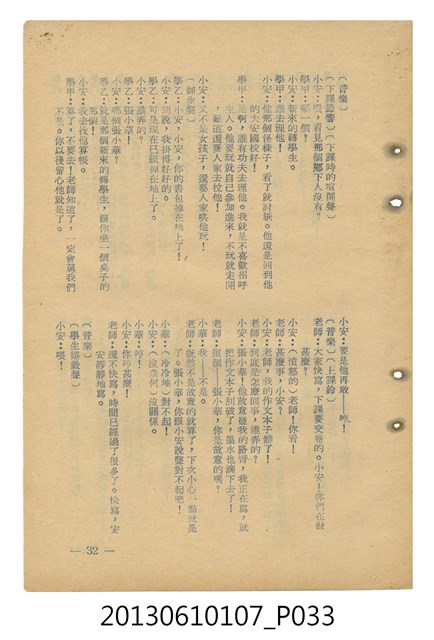 （音樂）
（下課鈴響）（下課時的喧鬧聲）
小安：喂，看見那個鄉下人沒有？
學甲：哪一個？
小安：新來的轉學生。
學甲：誰去理他！
小安：他那個怪樣子，看了就討厭。他還是回到他
的大安國校好！
學甲：是啊，誰有功夫去理他。我就是不喜歡招呼
生人。他要玩就自己參加進來，不玩就走開
，難道還要人家去拉他！
小安：又不是女孩子，還要人家哄他玩！
（脚步聲）
學乙：小安，小安，你的書包掉在地上了！
小安：胡說，我掛得好好的。
學乙：可是現在已經掉在地上了。
小安：誰弄的？
學乙：張小華！
小安：哪個張小華？
學乙：就是那個新來的轉學生，跟你坐一個桌子的
那個！
小安：我去找他算帳。
學甲：算了，不要去！老師知道了，一定會罵我們
不是。你以後留心他就是了。
小安：要是他再敢——哼！
（音樂）（上課鈴）
老師：大家快寫，下課要交卷的。小安！你們在做
甚麼？
小安：（憤怒的）老師！你看！
老師：甚麼事，小安？
小安：老師，我的作文本子髒了！
老師：到底是怎麼回事，誰弄的？
小安：張小華！他故意碰我的胳臂，我正在寫，就
把作文本子刮破了，墨水也滴下去了！
老師：這個——張小華，你是故意的嗎？
小華：我——不是。
老師：既然不是故意的就算了，下次小心一點就是
了。張小華，你跟小安說聲對不起吧！
小華：（冷冷地）對不起！
小安：（沒奈何）沒關係。
（學生嘻笑聲）
小安：哼！
小安：你哼甚麼！
老師：還不快寫，時間已經過了很多了。快寫，安
安靜靜地寫。
（音樂）
（學生嬉戲聲）
小安：喂！
— 32 —
20130610107_P033